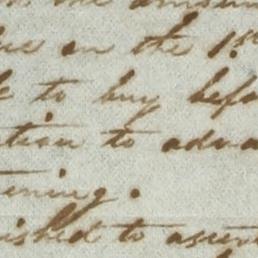 the amoun
on the 1st
to buy befo
to adva
ening.
ished to ascer